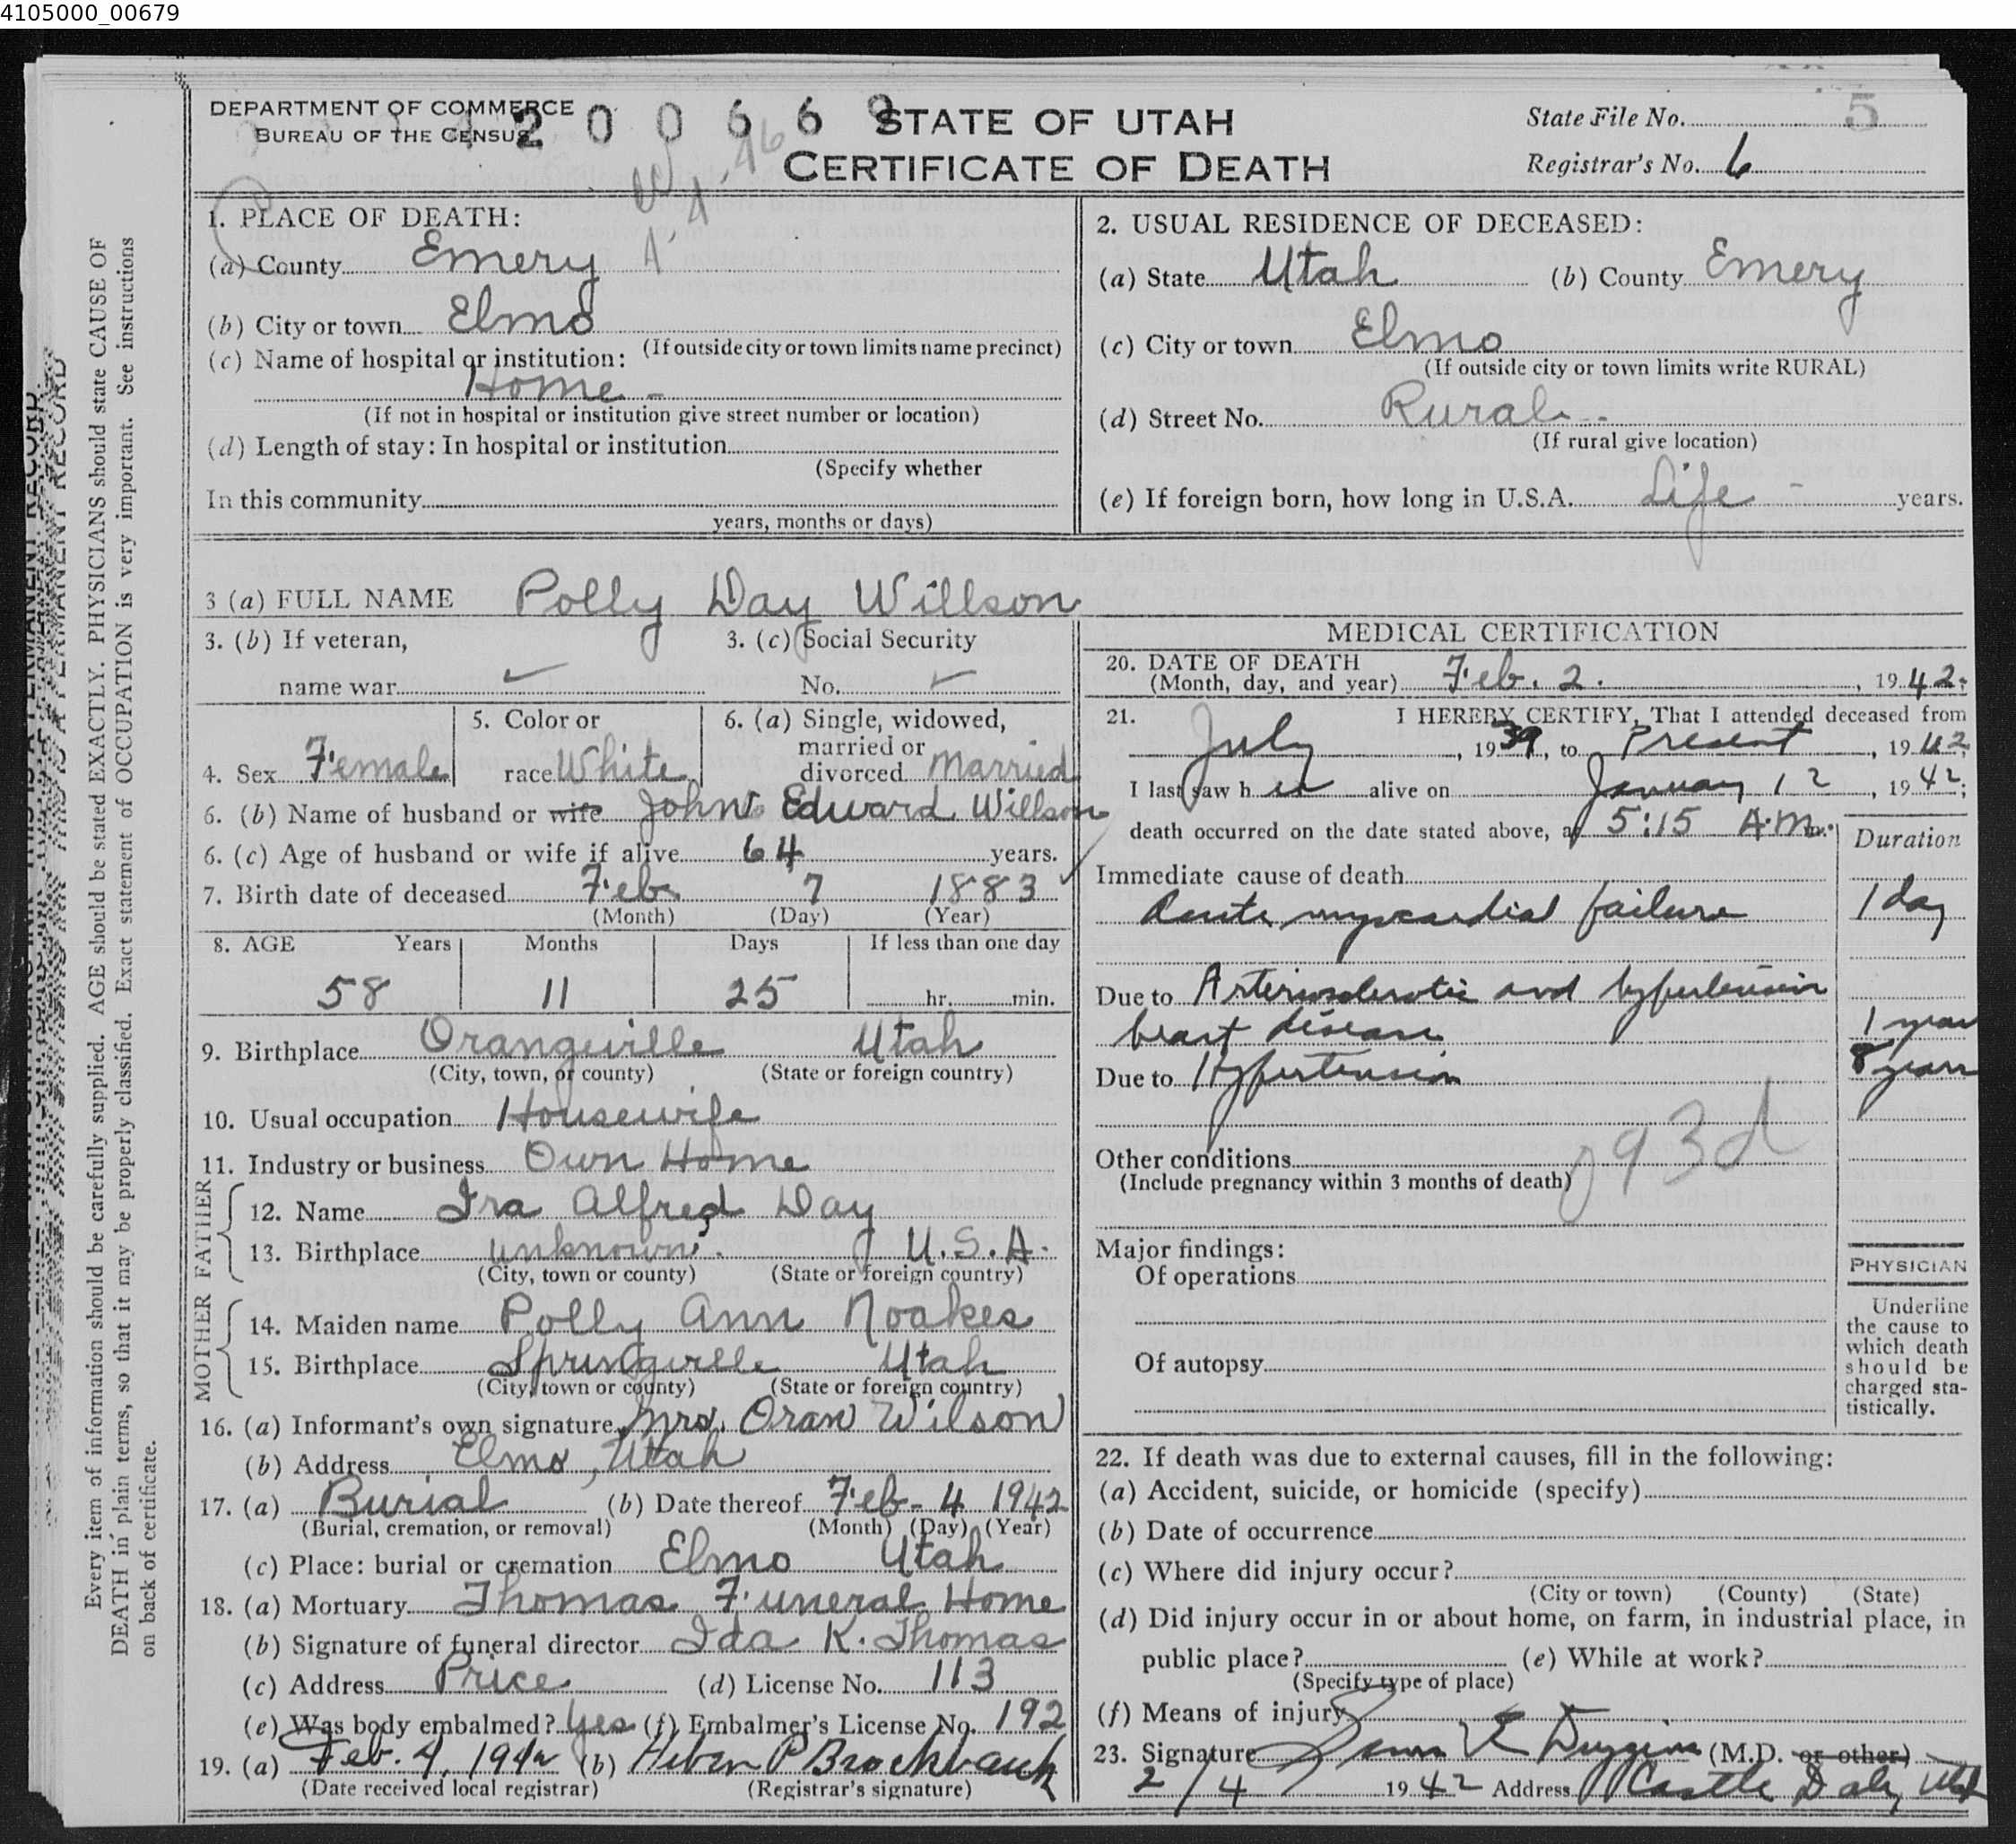 4105000_00679
DEPARTMENT OF COMMERCE
BUREAU OF THE CENSUS
4200669
STATE OF UTAH
CERTIFICATE OF DEATH
State File No. 5
Registrar's No. 6
1. PLACE OF DEATH:
(a) County Emery
(b) City or town Elmo
(If outside city or town limits name precinct)
(c) Name of hospital or institution:
Home -
(If not in hospital or institution give street number or location)
(d) Length of stay: In hospital or institution
(Specify whether
In this community
years, months or days)
2. USUAL RESIDENCE OF DECEASED:
(a) State Utah (b) County Emery
(c) City or town Elmo
(If outside city or town limits write RURAL)
(d) Street No. Rural
(If rural give location)
(e) If foreign born, how long in U.S.A. Life years.
3 (a) FULL NAME Polly Day Willson
3. (b) If veteran,
name war
3. (c) Social Security
No.
4. Sex Female
5. Color or
race White
6. (a) Single, widowed,
married or
divorced Married
6. (b) Name of husband or wife John Edward Willson
6. (c) Age of husband or wife if alive 64 years.
7. Birth date of deceased Feb 7 1883
(Month) (Day) (Year)
8. AGE Years Months Days If less than one day
58 11 25 hr. min.
9. Birthplace Orangeville Utah
(City, town, or county) (State or foreign country)
10. Usual occupation Housewife
11. Industry or business Own Home
FATHER
12. Name Ira Alfred Day
13. Birthplace unknown. U.S.A.
(City, town or county) (State or foreign country)
MOTHER
14. Maiden name Polly Ann Noakes
15. Birthplace Springville Utah
(City, town or county) (State or foreign country)
16. (a) Informant's own signature Mrs. Oran Wilson
(b) Address Elmo, Utah
17. (a) Burial (b) Date thereof Feb - 4 1942
(Burial, cremation, or removal) (Month) (Day) (Year)
(c) Place: burial or cremation Elmo Utah
18. (a) Mortuary Thomas Funeral Home
(b) Signature of funeral director Ida K. Thomas
(c) Address Price (d) License No. 113
(e) Was body embalmed? Yes (f) Embalmer's License No. 192
19. (a) Feb. 4, 1942 (b) Heber P Brockbank
(Date received local registrar) (Registrar's signature)
MEDICAL CERTIFICATION
20. DATE OF DEATH
(Month, day, and year) Feb. 2. , 1942.
21. I HEREBY CERTIFY, That I attended deceased from
July , 1939, to Present , 1942;
I last saw h er alive on January 12 , 1942;
death occurred on the date stated above, at 5:15 A.m.
Duration
Immediate cause of death
Acute myocardial failure 1 day
Due to Arteriosclerotic and hypertension
heart disease 1 year
Due to Hypertension 8 years
Other conditions 93d
(Include pregnancy within 3 months of death)
Major findings:
Of operations
Of autopsy
PHYSICIAN
Underline
the cause to
which death
should be
charged sta-
tistically.
22. If death was due to external causes, fill in the following:
(a) Accident, suicide, or homicide (specify)
(b) Date of occurrence
(c) Where did injury occur?
(City or town) (County) (State)
(d) Did injury occur in or about home, on farm, in industrial place, in
public place? (e) While at work?
(Specify type of place)
(f) Means of injury
23. Signature Duggins (M.D. or other)
2/4 1942 Address Castle Dale, Utah
Every item of information should be carefully supplied. AGE should be stated EXACTLY. PHYSICIANS should state CAUSE OF
DEATH in plain terms, so that it may be properly classified. Exact statement of OCCUPATION is very important. See instructions
on back of certificate.